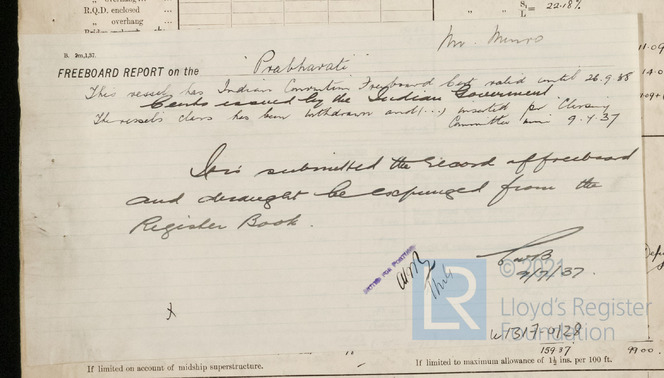 R.Q.D. enclosed
" overhang
S/L = 22.18%
Mr. Munro
FREEBOARD REPORT on the "Prabhavati"
This vessel has Indian Convention Freeboard Cert valid until 26.9.38
Certs issued by the Indian Government
The vessel's class has been withdrawn and (...) inserted per Classing
Committee min 9.4.37
It is submitted the record of freeboard
and draught be expunged from the
Register Book.
7/7/37.
© 2021
LR
Lloyd's Register
Foundation
W1317-0128
159.37
99.00
If limited on account of midship superstructure.
If limited to maximum allowance of 1½ ins. per 100 ft.